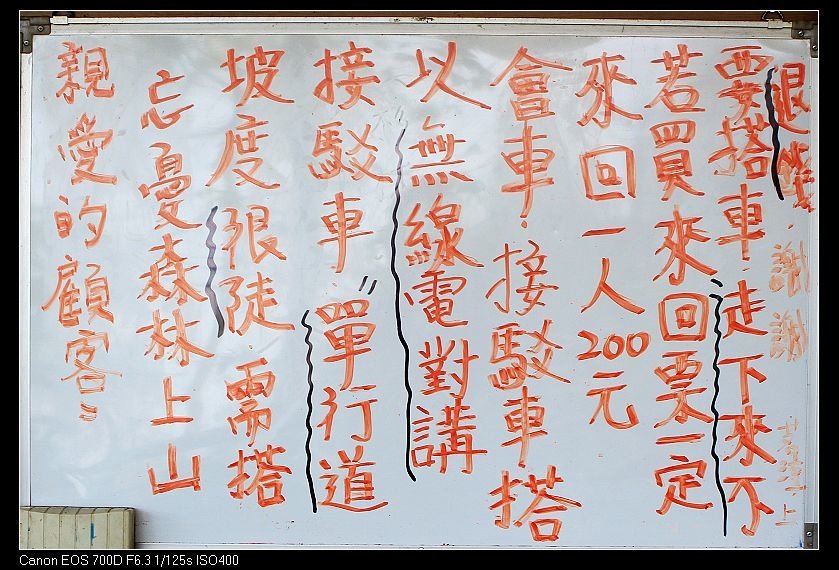 親愛的顧客：
忘憂森林上山
坡度很陡．需搭
接駁車．"單行道
以無線電對講
會車．接駁車搭
來回一人200元
若買來回票一定
要搭車．走下來不
退錢．謝謝
上
Canon EOS 700D F6.3 1/125s ISO400